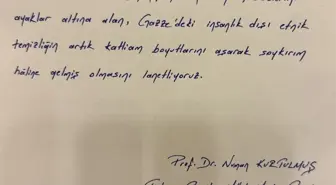 ayaklar altına alan, Gazze'deki insanlık dışı etnik
temizliğin artık katliam boyutlarını aşarak soykırım
hâline gelmiş olmasını lanetliyoruz.
Prof. Dr. Numan KURTULMUŞ